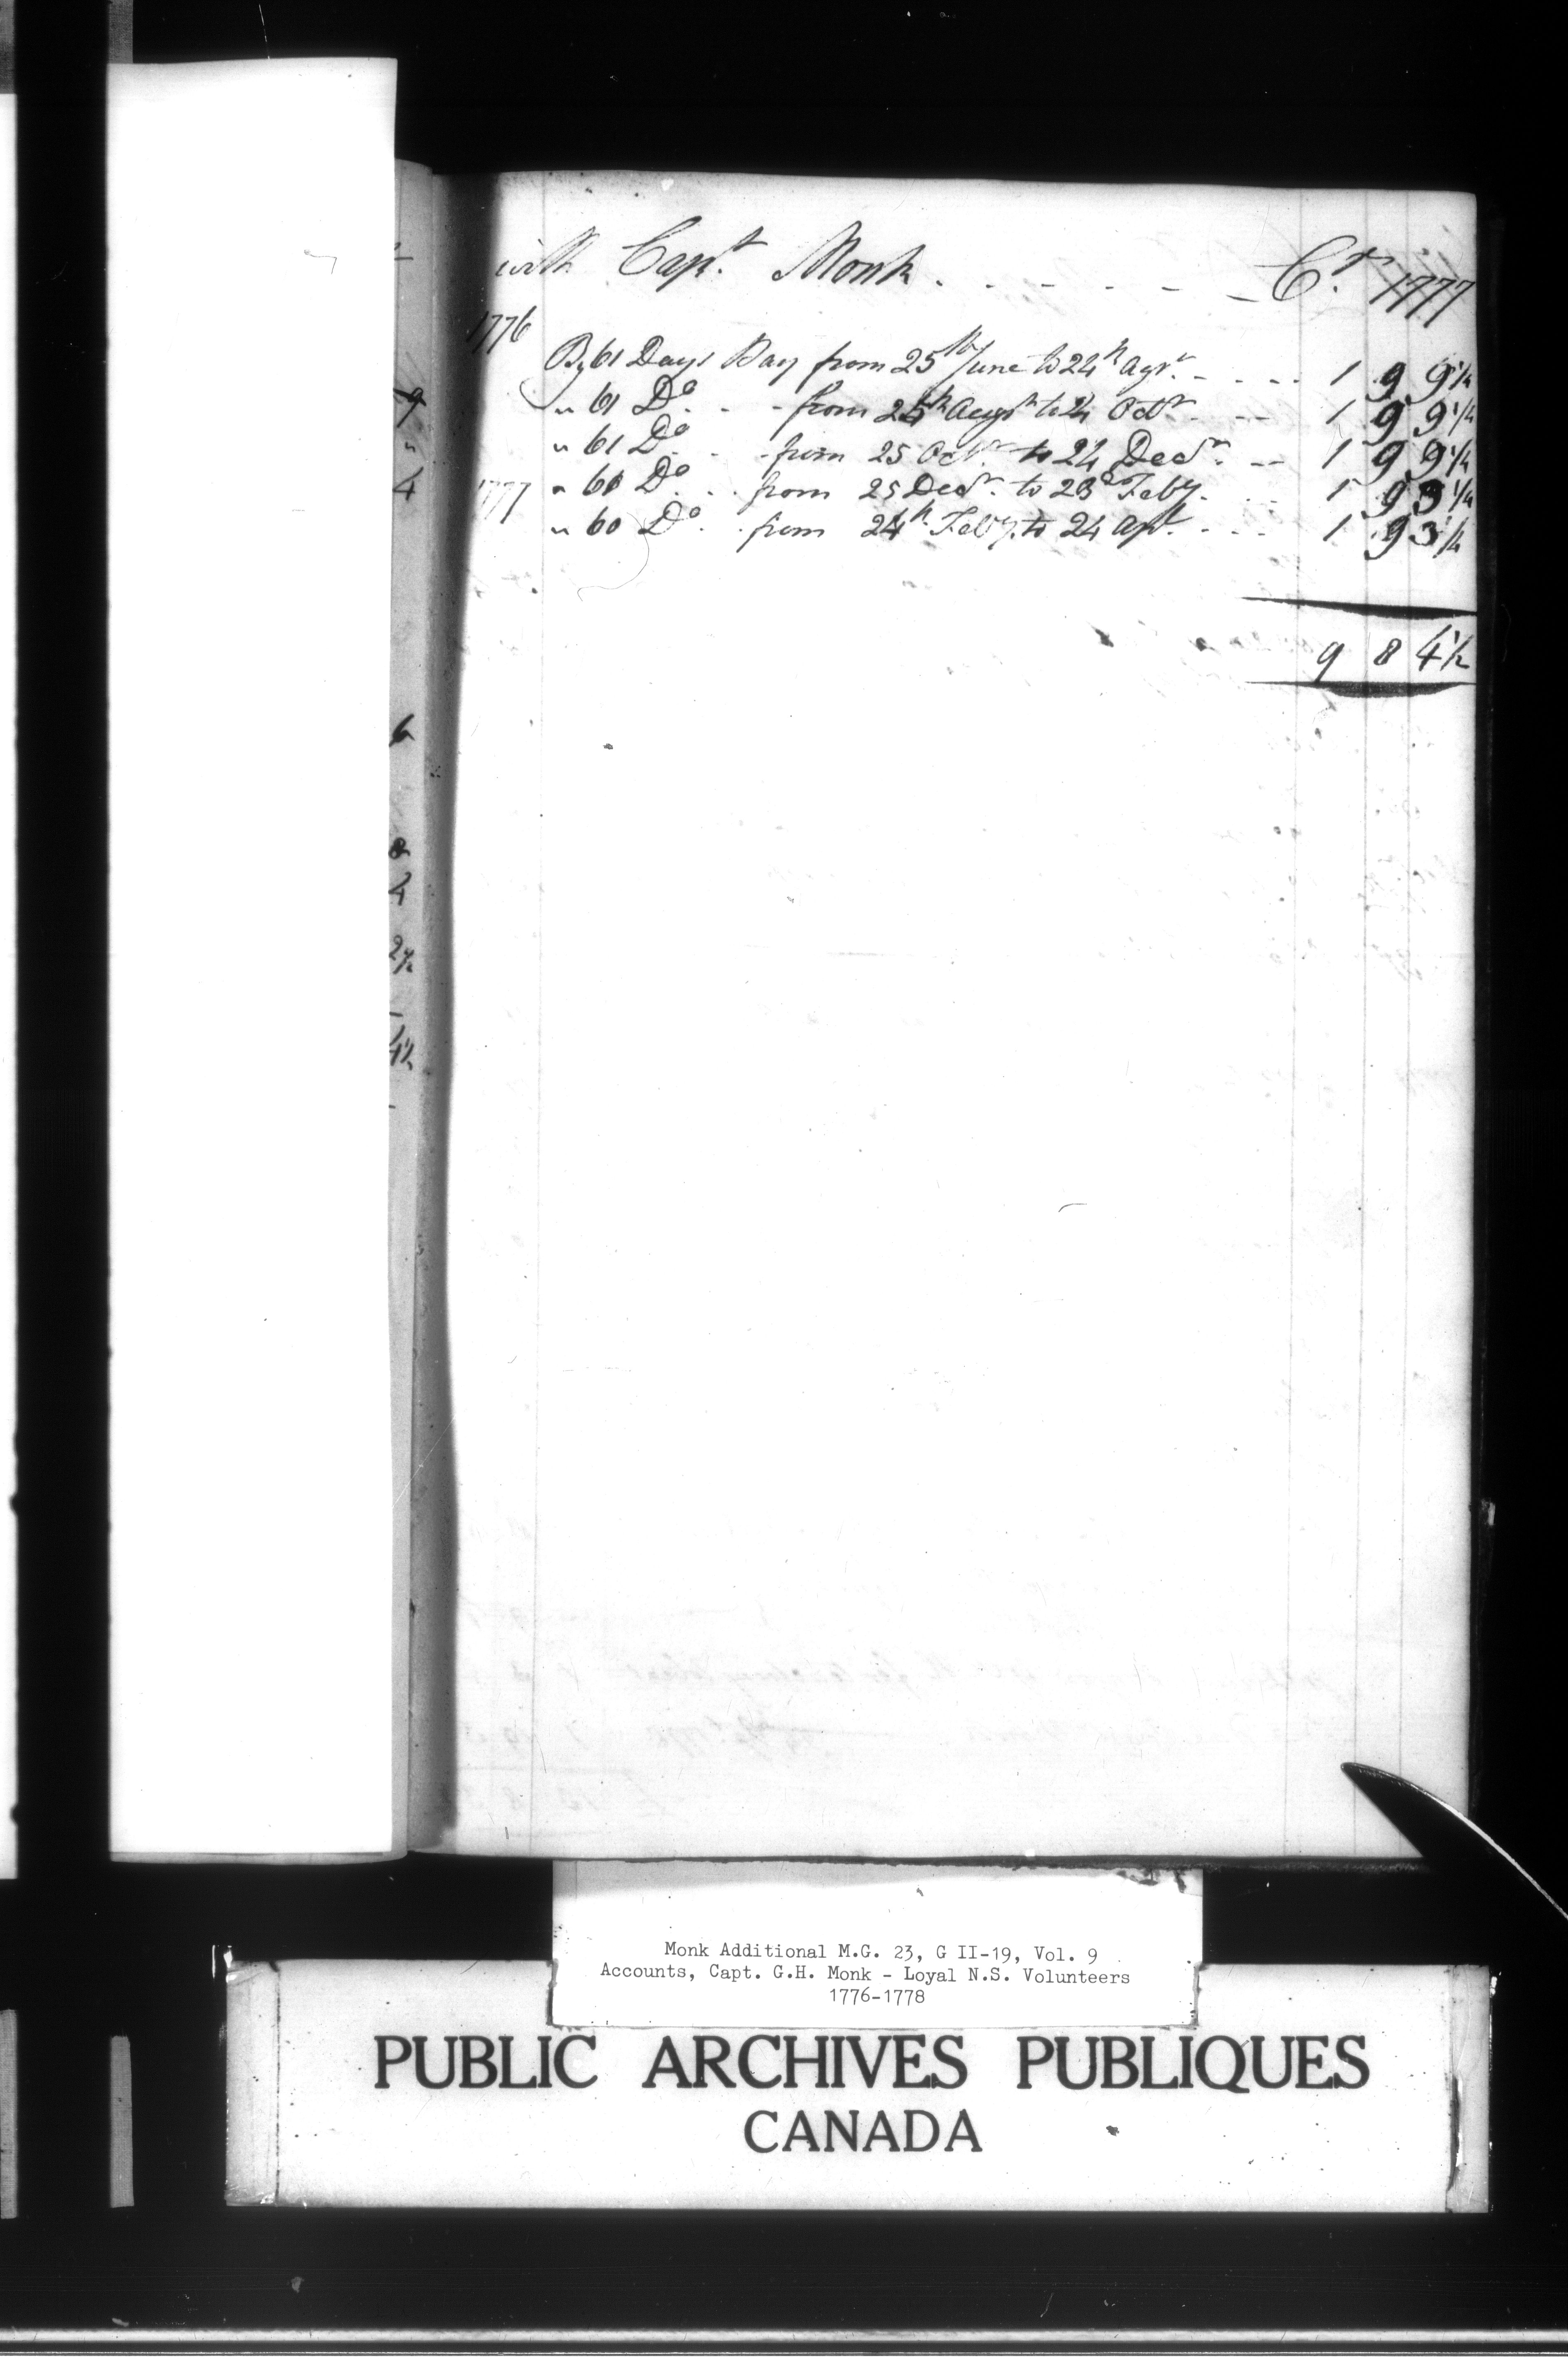 9
"
4
6
8
4
2½
4½
with Capt. Monk . - - - - - - Cr. 1777
1776
By 61 Days Pay from 25th June to 24th Augt. - - - - 1 9 9¼
" 61 Do. - - from 25th Augst to 24 Octr - - - 1 9 9¼
" 61 Do. - - from 25 Octr. to 24 Decr. - - 1 9 9¼
1777 " 60 Do. - - from 25 Decr. to 23d Feby. - - - 1 9 3¼
" 60 Do. - from 24th Feby. to 24 Apl. - - - 1 9 3¼
9 8 4½
Monk Additional M.G. 23, G II-19, Vol. 9
Accounts, Capt. G.H. Monk - Loyal N.S. Volunteers
1776-1778
PUBLIC ARCHIVES PUBLIQUES
CANADA